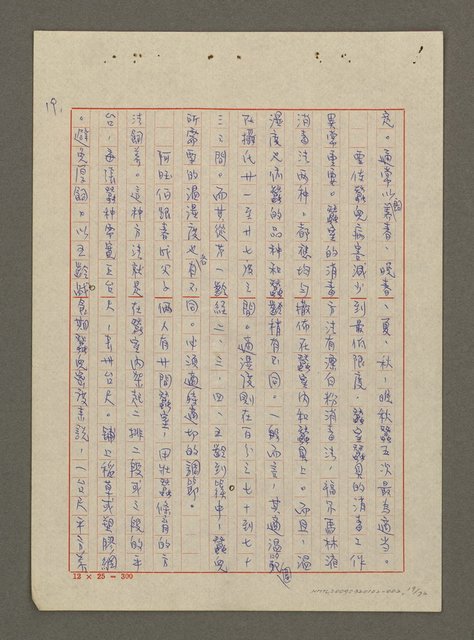 19.
完。通常以養春、晚春、夏、秋、晚秋蠶五次最為適當。
要使蠶兒病害減少到最低限度,蠶室蠶具的消毒工作
異常重要。蠶室的消毒方法有漂白粉消毒法,福爾馬林液
消毒法兩種。都應均勻撒佈在蠶室內和蠶具上。而且,溫
濕度又依蠶的品種和蠶齡稍有不同。一般而言,其適溫範圍
在攝氏廿一至廿七度之間。適濕度則在百分之七十到七十
三之間。而其從第一齡經二、三、四、五齡到簇中,蠶兒
所需要的溫濕度也各有不同。必須適時適切的調節。
阿旺伯跟春成父子倆人有廿間蠶室,用壯蠶條育的方
法飼養。這種方法就是在蠶室內架起二排二段或三段的平
台,每張蠶種需寬五台尺,長卅台尺。鋪上稻草或塑膠網
。避免厚飼。以五齡蠶食期蠶兒密度來說,一台尺平方養
12 × 25 = 300
NMTL20090320102-002, 19/26